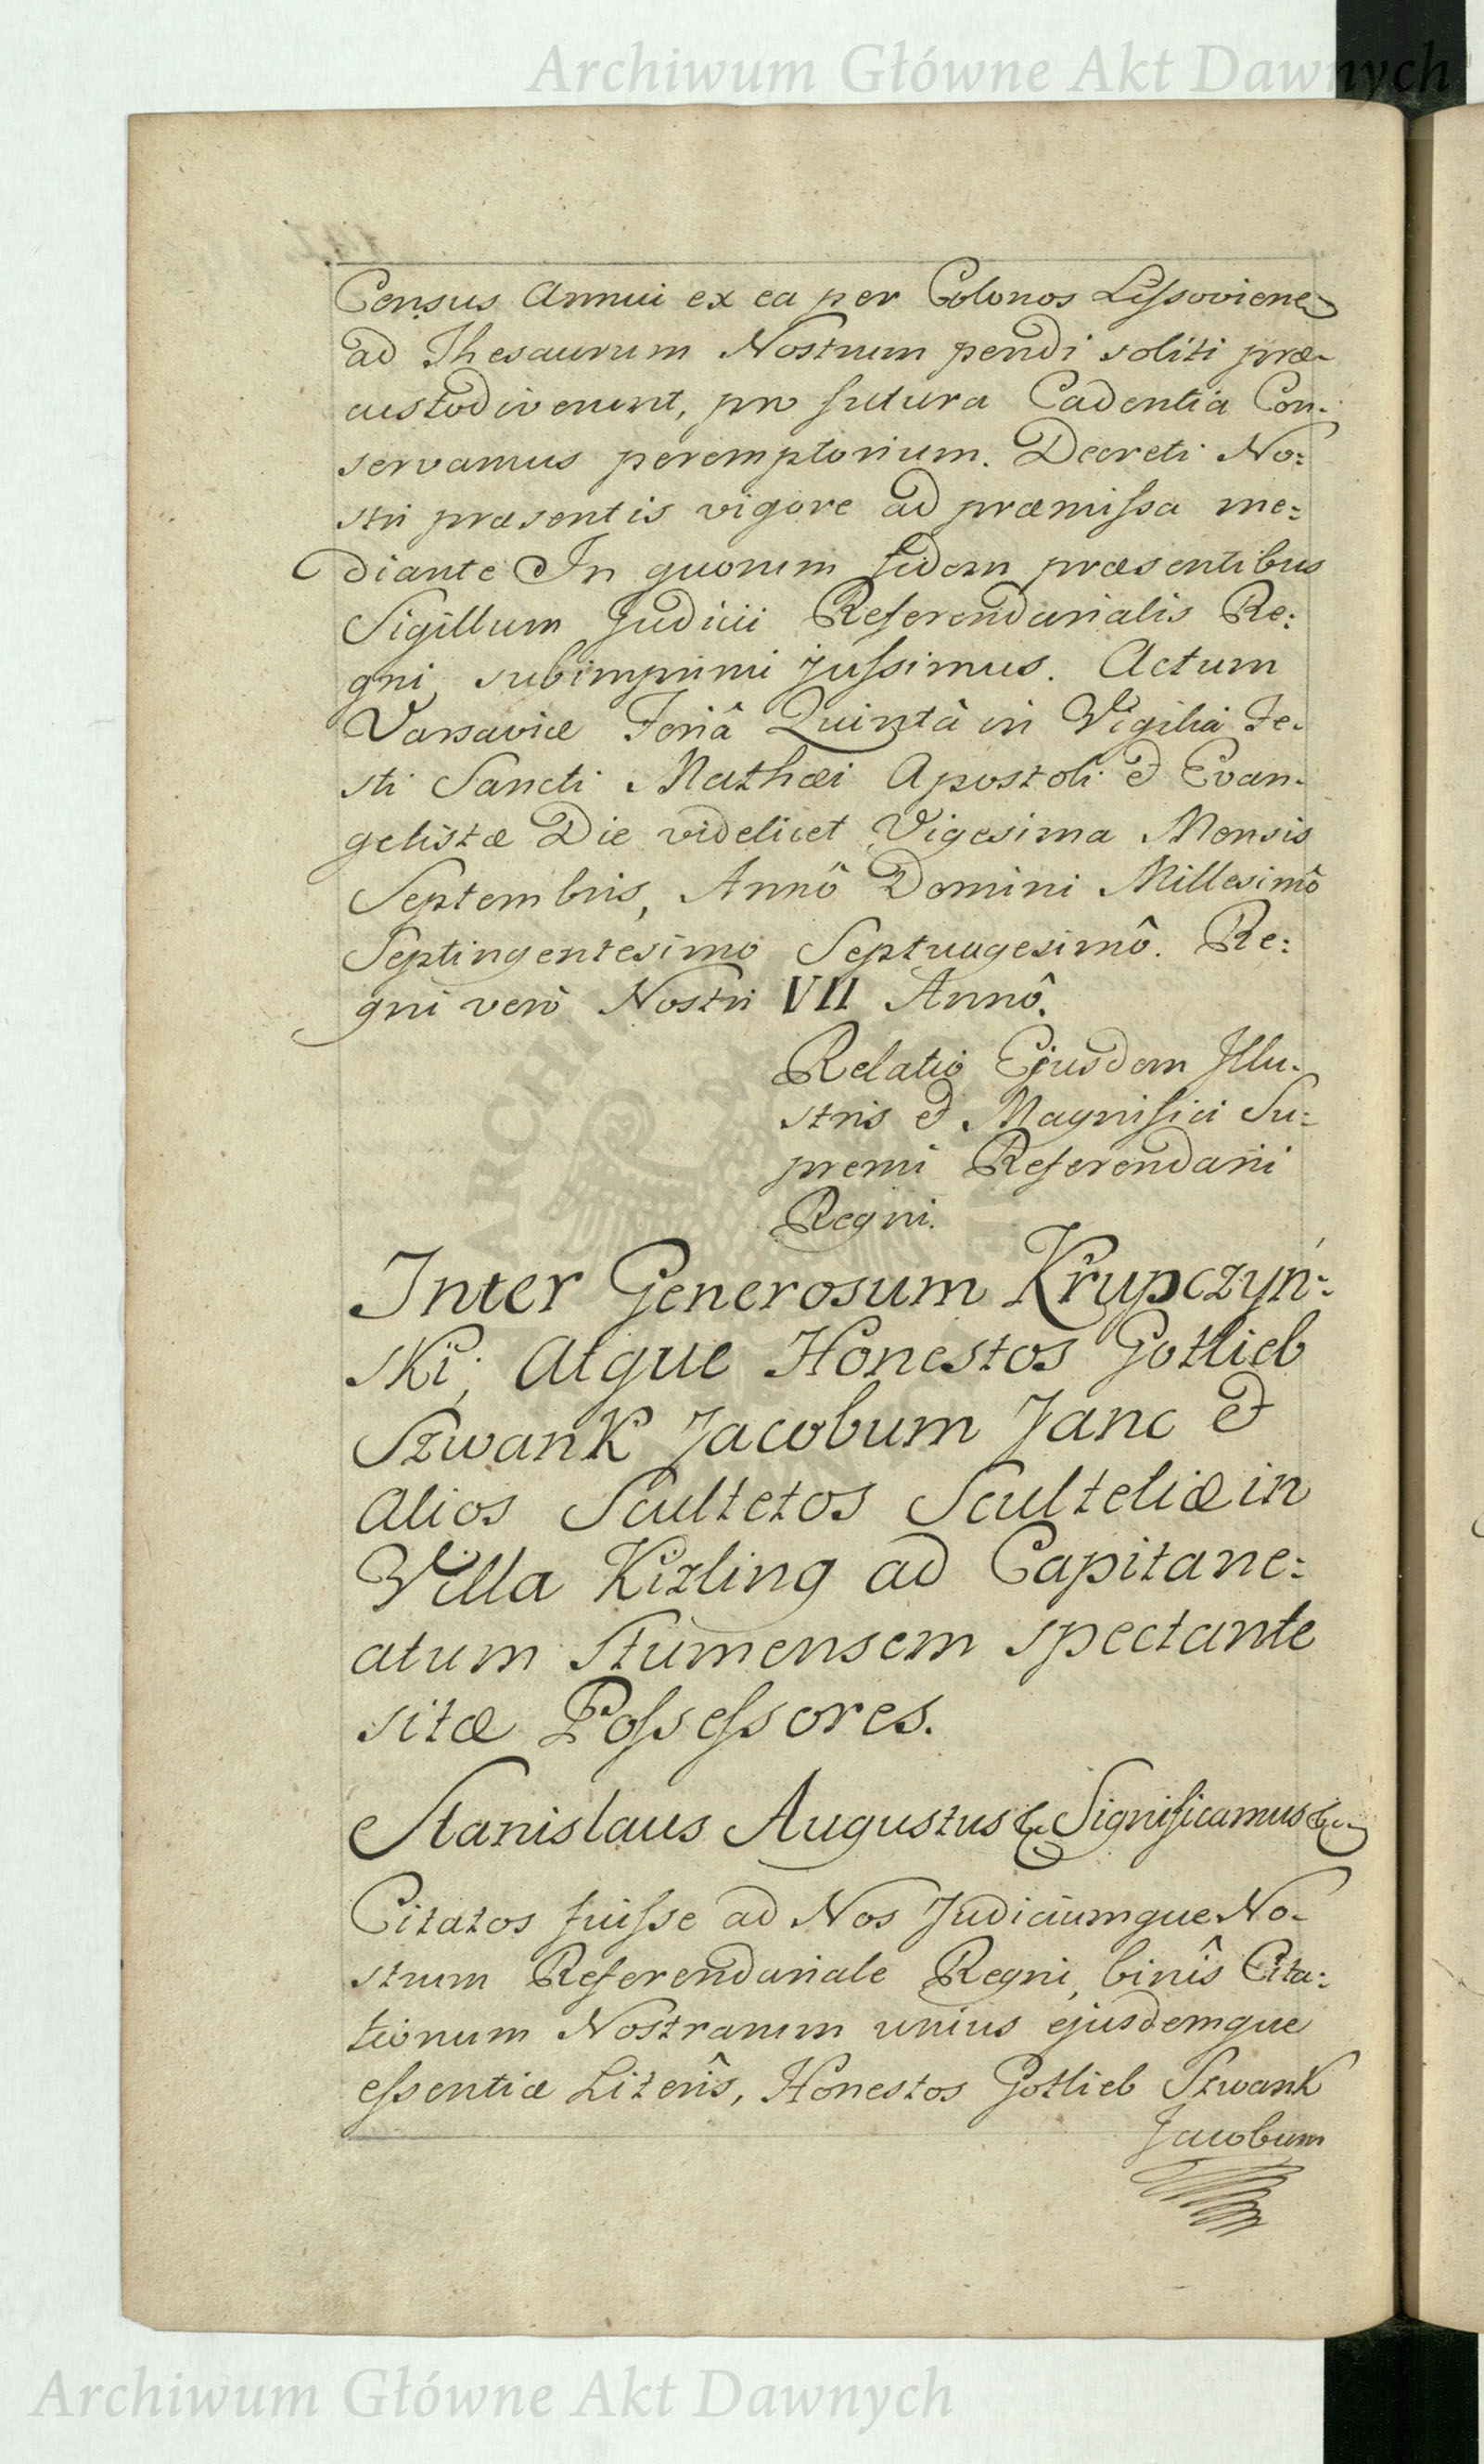 Archiwum Główne Akt Dawnych
Census Annui ex ea per Colonos Lissovienes
ad Thesaurum Nostrum pendi soliti præ-
custodiverunt, pro futura Cadentia Con-
servamus peremptorium. Decreti No:
stri præsentis vigore ad præmissa me:
diante In quorum fidem præsentibus
Sigillum Judicii Referendarialis Re:
gni subimprimi jussimus. Actum
Varsaviæ Feriâ Quintâ in Vigilia Fe-
sti Sancti Mathæi Apostoli & Evan-
gelistæ Die videlicet Vigesima Mensis
Septembris, Annô Domini Millesimô
Septingentesimo Septuagesimô. Re:
gni verò Nostri VII Annô.
Relatio Ejusdem Illu-
stris & Magnifici Su:
premi Referendarii
Regni.
Inter Generosum Krupczyń:
ski, Atque Honestos Gotlieb
Szwank Jacobum Janc &
Alios Scultetos Scultetiæ in
Villa Kizling ad Capitane:
atum Stumensem spectante
sitæ Possessores.
Stanislaus Augustus &c Significamus &c
Citatos fuisse ad Nos Judiciumque No-
strum Referendariale Regni, binîs Cita:
tionum Nostrarum unius ejusdemque
essentiæ Literîs, Honestos Gotlieb Szwank
Jacobum
Archiwum Główne Akt Dawnych